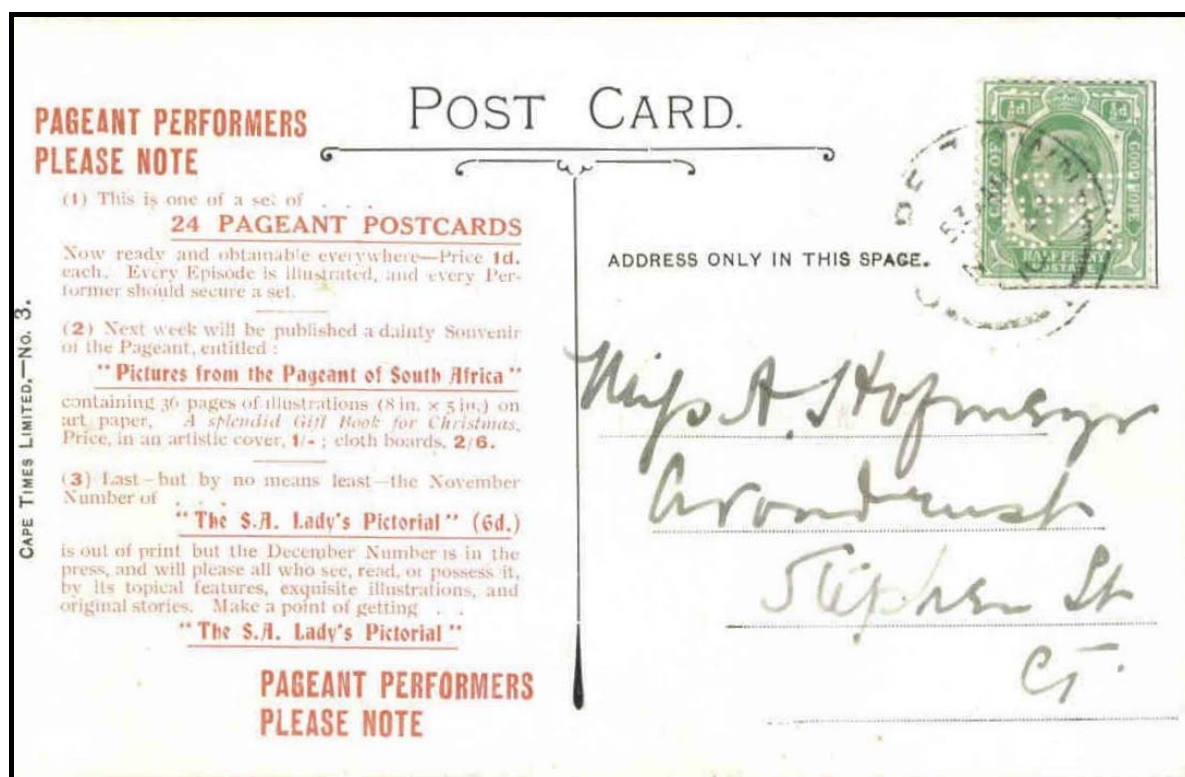 POST CARD.
PAGEANT PERFORMERS
PLEASE NOTE
(1) This is one of a set of . . .
24 PAGEANT POSTCARDS
Now ready and obtainable everywhere—Price 1d.
each. Every Episode is illustrated, and every Per-
former should secure a set.
(2) Next week will be published a dainty Souvenir
of the Pageant, entitled :
"Pictures from the Pageant of South Africa"
containing 36 pages of illustrations (8 in. × 5 in.) on
art paper. A splendid Gift Book for Christmas.
Price, in an artistic cover, 1/- ; cloth boards, 2/6.
(3) Last—but by no means least—the November
Number of . . .
"The S.A. Lady's Pictorial" (6d.)
is out of print but the December Number is in the
press, and will please all who see, read, or possess it,
by its topical features, exquisite illustrations, and
original stories. Make a point of getting . .
"The S.A. Lady's Pictorial"
PAGEANT PERFORMERS
PLEASE NOTE
CAPE TIMES LIMITED.—No. 3.
ADDRESS ONLY IN THIS SPACE.
½d ½d
CAPE OF GOOD HOPE
HALF PENNY
POSTAGE
Miss A. Hofmeyr
Avondrust
Stephen St
CT.